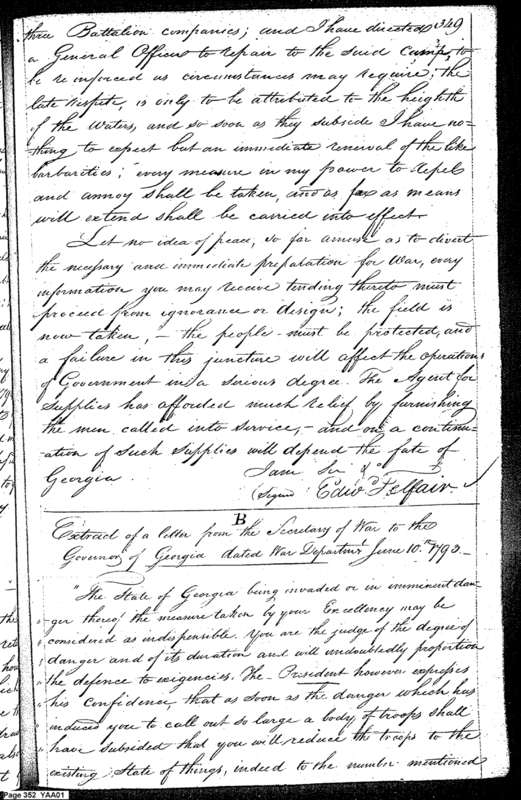 349
three Battalion companies; and I have directed
a General Officer to repair to the said camp, to
be reinforced as circumstances may require; the
late respite, is only to be attributed to the heighth
of the Waters, and so soon as they subside I have no-
-thing to expect but an immediate renewal of the like
barbarities; every measure in my power to repel
and annoy shall be taken, and as far as means
will extend shall be carried into effect.
Let no idea of peace, so far amuse as to divert
the necessary and immediate preparation for War, every
information you may receive tending thereto must
proceed from ignorance or design; the field is
now taken, — the people must be protected, and
a failure in this juncture will affect the operations
of Government in a serious degree. The Agent for
Supplies has afforded much relief by furnishing
the men called into service, — and on a continu-
ation of such Supplies will depend the fate of
Georgia. I am Sir &
(Signed Edwd Telfair.
B
Extract of a letter from the Secretary of War to the
Governor of Georgia dated War Departmt June 10.th 1793.—
"The State of Georgia being invaded or in imminent dan-
" ger thereof the measure taken by your Excellency may be
" considered as indispensible. You are the judge of the degree of
" danger and of its duration and will undoubtedly proportion
" the defence to exigencies. The President however expresses
" his confidence, that as soon as the danger which has
" induced you to call out so large a body of troops shall
" have subsided that you will reduce the troops to the
" existing State of things, indeed to the number mentioned
Page 352 YAA01